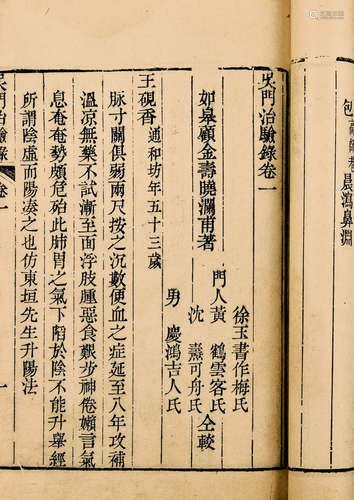 包
晨瀉鼻淵
吴門治驗錄卷一
如皋顧金壽曉瀾甫著
徐玉書作梅氏
門人黃鶴雲客氏
沈燾可舟氏仝較
男慶鴻吉人氏
王硯香通和坊年五十三歲
脉寸關俱弱兩尺按之沉數便血之症延至八年攻補
溫凉無藥不試漸至面浮肢腫惡食艱步神倦嬾言氣
息奄奄勢頗危殆此肺胃之氣下陷於陰不能升舉經
所謂陰虛而陽湊之也仿東垣先生升陽法
吴門治驗錄
卷一
一